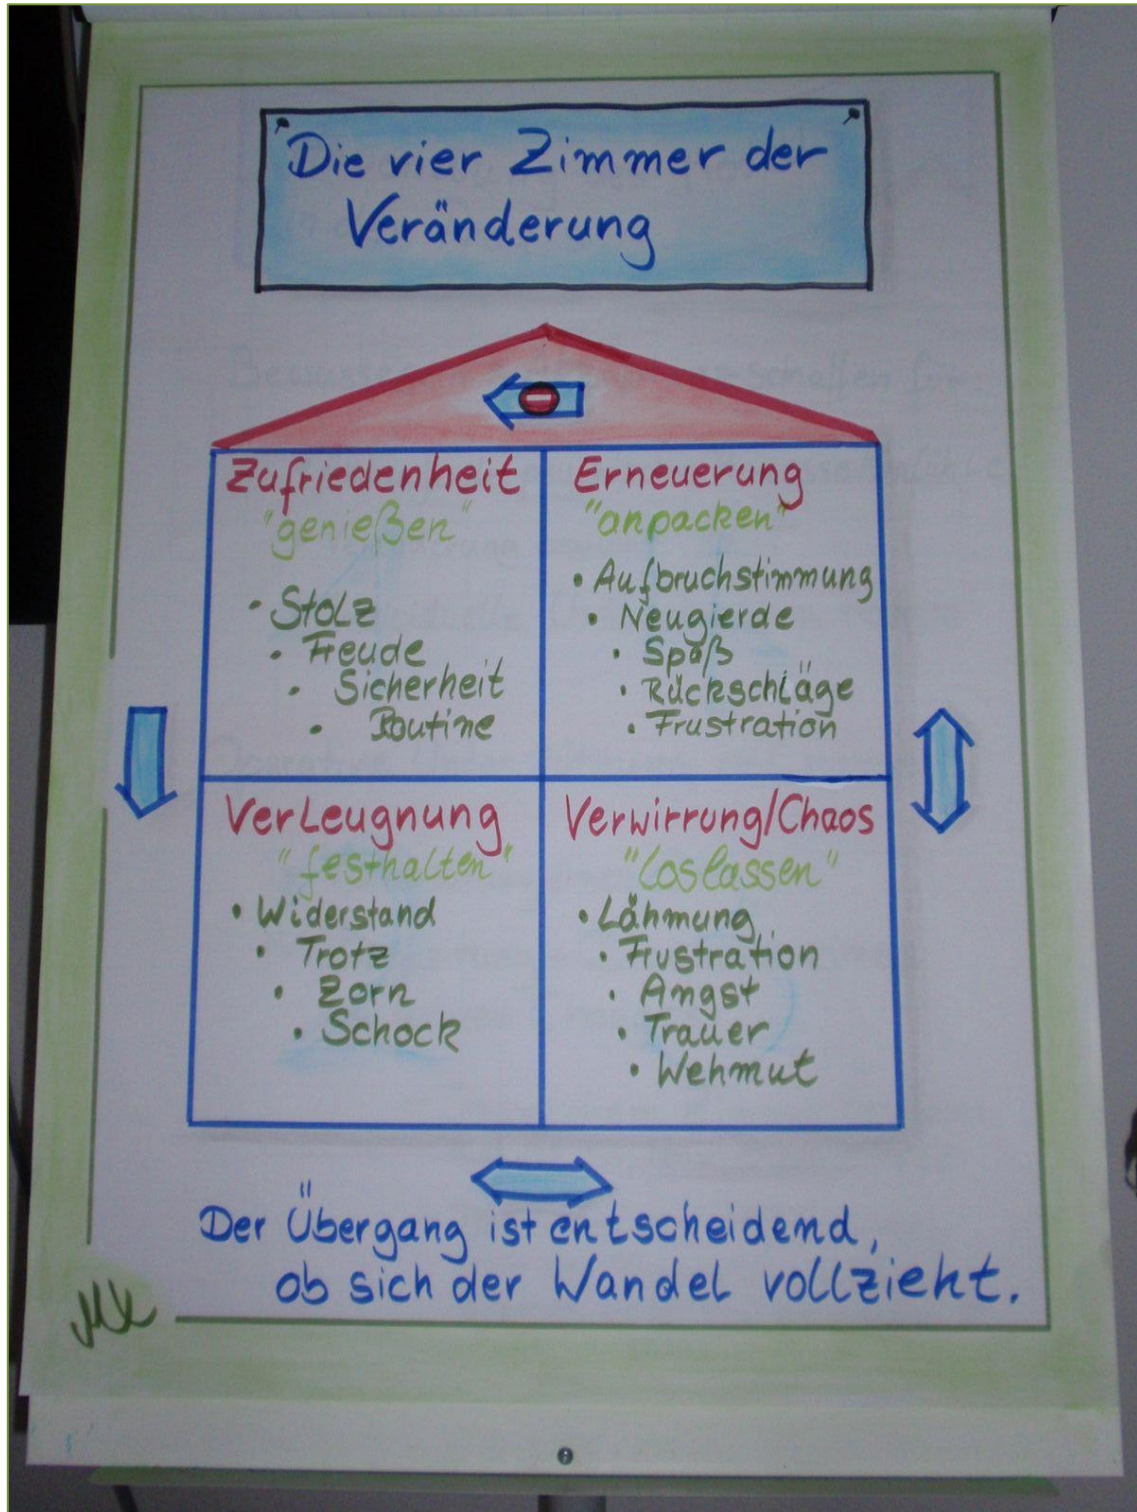 Die vier Zimmer der
Veränderung
Zufriedenheit
"genießen"
• Stolz
• Freude
• Sicherheit
• Routine
Erneuerung
"anpacken"
• Aufbruchstimmung
• Neugierde
• Spaß
• Rückschläge
• Frustration
Verleugnung
"festhalten"
• Widerstand
• Trotz
• Zorn
• Schock
Verwirrung/Chaos
"loslassen"
• Lähmung
• Frustration
• Angst
• Trauer
• Wehmut
Der Übergang ist entscheidend,
ob sich der Wandel vollzieht.